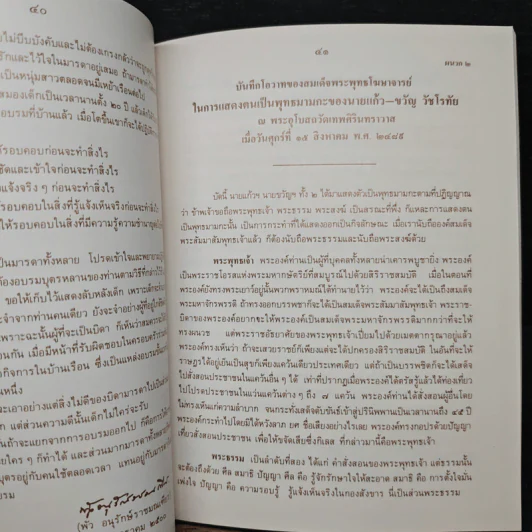 ๔๐
ไม่บีบบังคับและไม่ต้องเกรงกลัว
รักและไว้ใจในมารดาอยู่เสมอ
เป็นหนุ่มสาวตลอดจนมีเหย้าเรือนต่อไป
เด็กเป็นเวลานานตั้ง ๒๐ ปี
อบรมที่บ้านแล้ว เมื่อโตขึ้นเขาก็จะได้
รอบคอบก่อนจะทำสิ่งไร
ชัดและเข้าใจก่อนจะทำสิ่งไร
แจ้งจริง ๆ ก่อนจะทำสิ่งไร
ให้รอบคอบในสิ่งที่รู้แจ้งเห็นจริงก่อนจะทำ
ให้รอบคอบในสิ่งที่มีความรู้ความชำนาญ
เป็นมารดาทั้งหลาย โปรดเข้าใจและพยายาม
ต้องอบรมบุตรหลานของท่านตามวิธีที่กล่าว
ขอให้เก็บไว้แสดงลับหลังเด็ก เพราะเด็ก
จำจากท่านคนเดียว ยังจะจำอย่างผู้อื่น
เพราะฉะนั้นผู้ที่จะเป็นบิดา ก็เห็นว่าสมควร
กัน เมื่อมีหน้าที่รับผิดชอบในครอบครัว
กิจการในบ้านเรือน ซึ่งเป็นแหล่งอบรม
หนึ่ง
จะเอาอย่างแต่สิ่งไม่ดีของบิดามาใส่
แต่ส่วนความดีนั้นเด็กไม่ใคร่จะรับ
นั้นถ้าจะแยกจากการอบรมออกไป ก็คือการ
ใคร ๆ ก็ทำได้ และส่วนมากมารดาทั้งหลาย
บุตรอยู่กับคนใช้ตลอดเวลา แทนอยู่กับมารดา
อบรม
(พัว อนุรักษ์ราชมณเฑียร)
๔๑
ผนวก ๒
บันทึกโอวาทของสมเด็จพระพุทธโฆษาจารย์
ในการแสดงตนเป็นพุทธมามกะของนายแก้ว-ขวัญ วัชโรทัย
ณ พระอุโบสถวัดเทพศิรินทราวาส
เมื่อวันศุกร์ที่ ๑๕ สิงหาคม พ.ศ. ๒๔๘๕
บัดนี้ นายแก้วฯ นายขวัญฯ ทั้ง ๒ ได้มาแสดงตัวเป็นพุทธมามกะตามที่ปฏิญญาณ
ว่า ข้าพเจ้าขอถือพระพุทธเจ้า พระธรรม พระสงฆ์ เป็นสรณะที่พึ่ง ก็แหละการแสดงตน
เป็นพุทธมามกะนั้น เป็นการกระทำที่ได้แสดงออกเป็นกิจลักษณะ เมื่อเรานับถือองค์สมเด็จ
พระสัมมาสัมพุทธเจ้าแล้ว ก็ต้องนับถือพระธรรมและนับถือพระสงฆ์ด้วย
พระพุทธเจ้า พระองค์ท่านเป็นผู้ที่บุคคลทั้งหลายน่าเคารพบูชายิ่ง พระองค์
เป็นพระราชโอรสแห่งพระมหากษัตริย์ที่สมบูรณ์ไปด้วยสิริราชสมบัติ เมื่อในตอนที่
พระองค์ยังทรงพระเยาว์อยู่นั้นพวกพราหมณ์ได้ทำนายไว้ว่า พระองค์จะได้เป็นถึงสมเด็จ
พระมหาจักรพรรดิ ถ้าทรงออกบรรพชาก็จะได้เป็นสมเด็จพระสัมมาสัมพุทธเจ้า พระราช-
บิดาของพระองค์อยากจะให้พระองค์เป็นสมเด็จพระมหาจักรพรรดิมากกว่าที่จะให้
ทรงผนวช แต่พระราชอัธยาศัยของพระพุทธเจ้าเปี่ยมไปด้วยเมตตากรุณาอยู่แล้ว
พระองค์ทรงเห็นว่า ถ้าจะเสวยราชย์ก็เพียงแต่จะได้ปกครองสิริราชสมบัติ ในอันที่จะให้
ราษฎรได้อยู่เย็นเป็นสุขก็เพียงแคว้นเดียวประเทศเดียว แต่ถ้าเป็นบรรพชิตก็จะได้เสด็จ
ไปสั่งสอนประชาชนในแคว้นอื่น ๆ ได้ เท่าที่ปรากฏเมื่อพระองค์ได้ตรัสรู้แล้วได้ท่องเที่ยว
ไปโปรดประชาชนในแว่นแคว้นต่าง ๆ ถึง ๗ แคว้น พระองค์ท่านได้สั่งสอนผู้อื่นโดย
ไม่ทรงเห็นแก่ความลำบาก จนกระทั่งเสด็จดับขันธ์เข้าสู่ปรินิพพานเป็นเวลานานถึง ๔๕ ปี
พระองค์กระทำไปโดยมิได้หวังลาภ ยศ ชื่อเสียงอย่างไรเลย พระองค์ทรงกอปรด้วยปัญญา
เที่ยวสั่งสอนประชาชน เพื่อให้ขจัดเสียซึ่งกิเลส ที่กล่าวมานี้คือพระพุทธเจ้า
พระธรรม เป็นลำดับที่สอง ได้แก่ คำสั่งสอนของพระพุทธเจ้า แต่ธรรมนั้น
จะต้องถึงด้วย ศีล สมาธิ ปัญญา ศีล คือ รู้จักรักษาใจให้สะอาด สมาธิ คือ การตั้งใจมั่น
เพ่งใจ ปัญญา คือ ความรอบรู้ รู้แจ้งเห็นจริงในกองสังขาร นี่เป็นส่วนพระธรรม